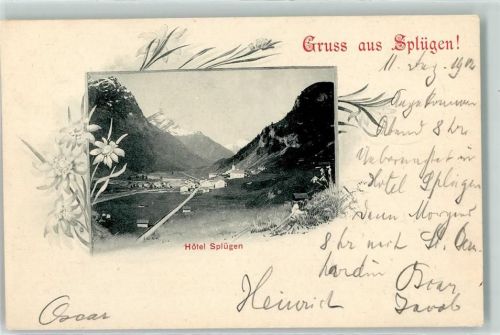 Gruss aus Splügen!
11. Aug. 1902
Angekommen
Abend 8 hr
Uebernachtet in
Hotel Splügen
dann Morgens
8 hr nach St. Bern
hardin
Hôtel Splügen
Oscar
Heinrich
Jacob